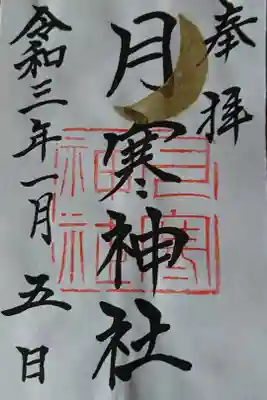 奉拝
月寒神社
月寒神社
令和三年一月五日